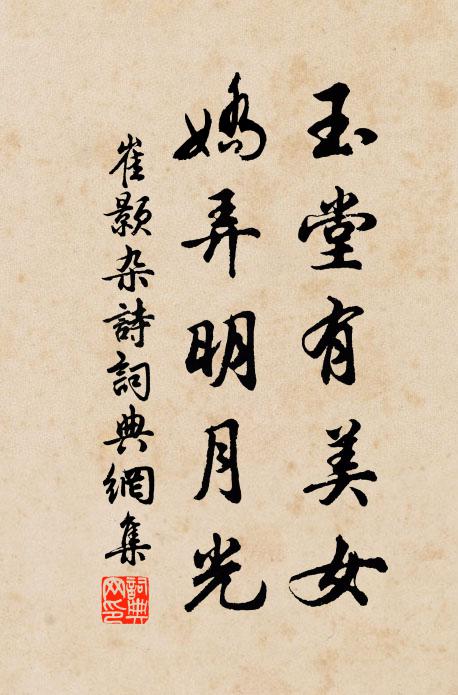 玉堂有美女
嬌弄明月光
崔顥杂詩詞典網集
詞典